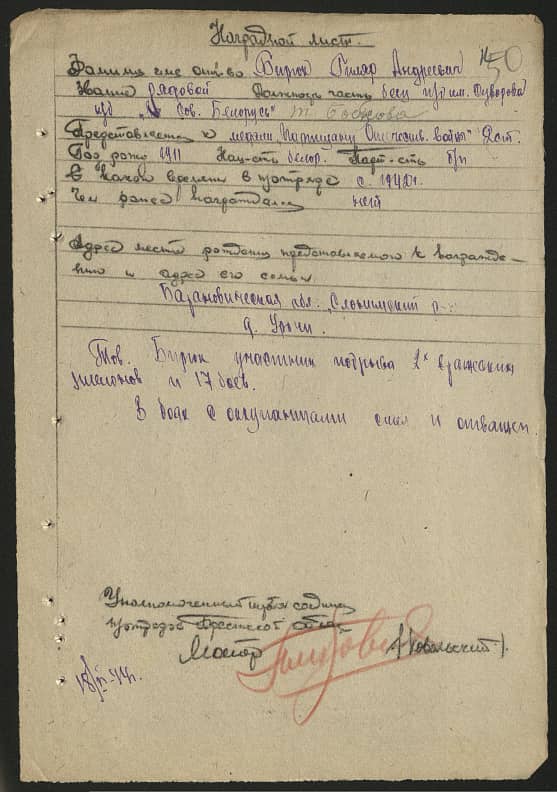 Наградной лист.
50
Фамилия имя отч-во Бирюк Гиляр Андреевич
Звание рядовой Должность часть боец п/о им. Суворова
"Сов. Белорусь"
Представляется к медали "Партизану Отечествен. войны" 2 ст.
Год рожд 1911 Нац-сть белор. Парт-сть б/п
С какого времени в п/отряде с 1942 г.
Чем ранее награждался нет
Адрес места рождения представляемого к награжде-
нию и адрес его семьи
Барановическая обл. Слонимский р-
д. Уроч
Тов. Бирюк участник подрыва 2х вражеских
эшелонов и 17 боев.
В боях с оккупантами смел и отважен
Уполномоченный штаба соедин
п/отрядов Брестской области
Майор
44 г.